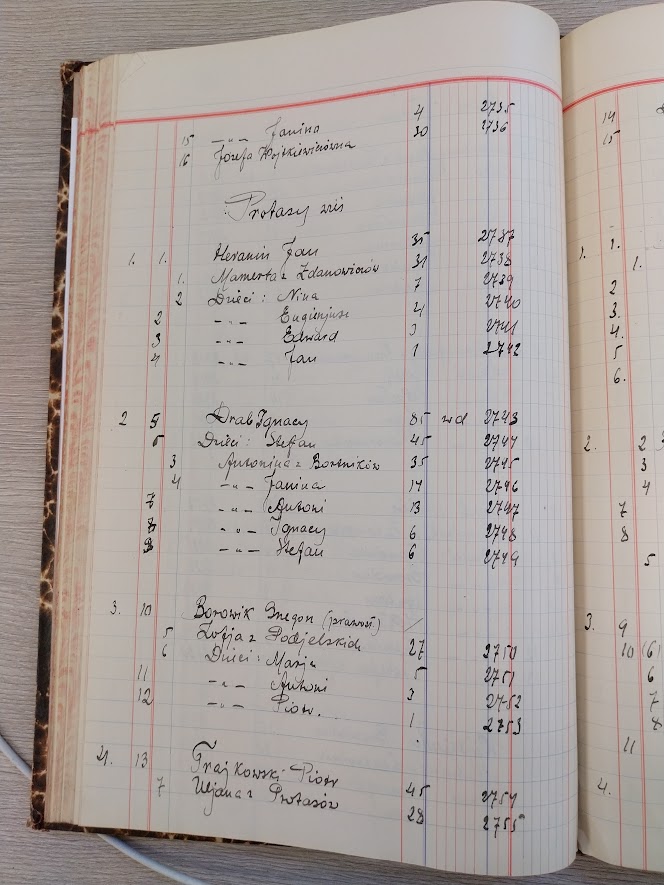 15 -„- Janina 4 2735
16 Józefa Wojtkiewiczówna 30 2736
Protasy wieś
1. 1. Heranin Jan 35 2737
1. Mamerta z Zdanowiczów 31 2738
2 Dzieci: Nina 7 2739
2 -„- Eugienjusz 4 2740
3 -„- Edward 3 2741
4 -„- Jan 1 2742
2 5 Drab Ignacy 85 wd 2743
6 Dzieci: Stefan 45 2744
3 Antonina z Bortników 35 2745
4 -„- Janina 14 2746
7 -„- Antoni 13 2747
8 -„- Ignacy 6 2748
9 -„- Stefan 6 2749
3. 10 Borowik (prawosł.) /
5 Zofja z Podjelskich 27 2750
6 Dzieci: Marja 5 2751
11 -„- Antoni 3 2752
12 -„- Piotr. 1 2753
4. 13 Trajkowski Piotr 45 2754
7 Uljana z Protasów 28 2755
14
15
1. 1.
1.
2
3.
4.
5
6.
2. 2
3
4
7
8
5
3. 9
10 (6)
6
7
8
11
4.